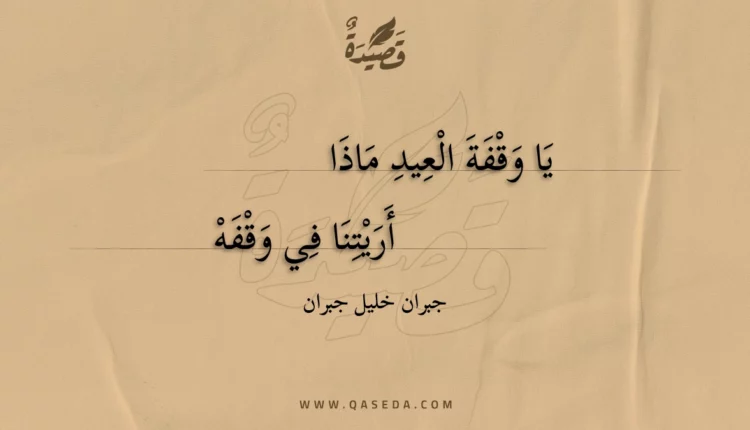 قَصِيْدَةٌ
يَا وَقْفَةَ الْعِيدِ مَاذَا
أَرَيْتِنَا فِي وَقْفَهْ
جبران خليل جبران
WWW.QASEDA.COM